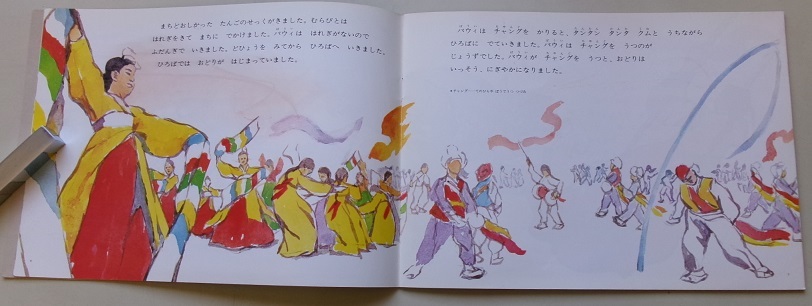 まちどおしかった たんごのせっくがきました。むらびとは
はれぎをきて まちに でかけました。パウィは はれぎがないので
ふだんぎで いきました。どひょうを みてから ひろばへ いきました。
ひろばでは おどりが はじまっていました。
パウィは チャングを かりると、タンタン タンタ クムと うちながら
ひろばに でていきました。パウィは チャングを うつのが
じょうずでした。パウィが チャングを うつと、おどりは
いっそう、にぎやかになりました。